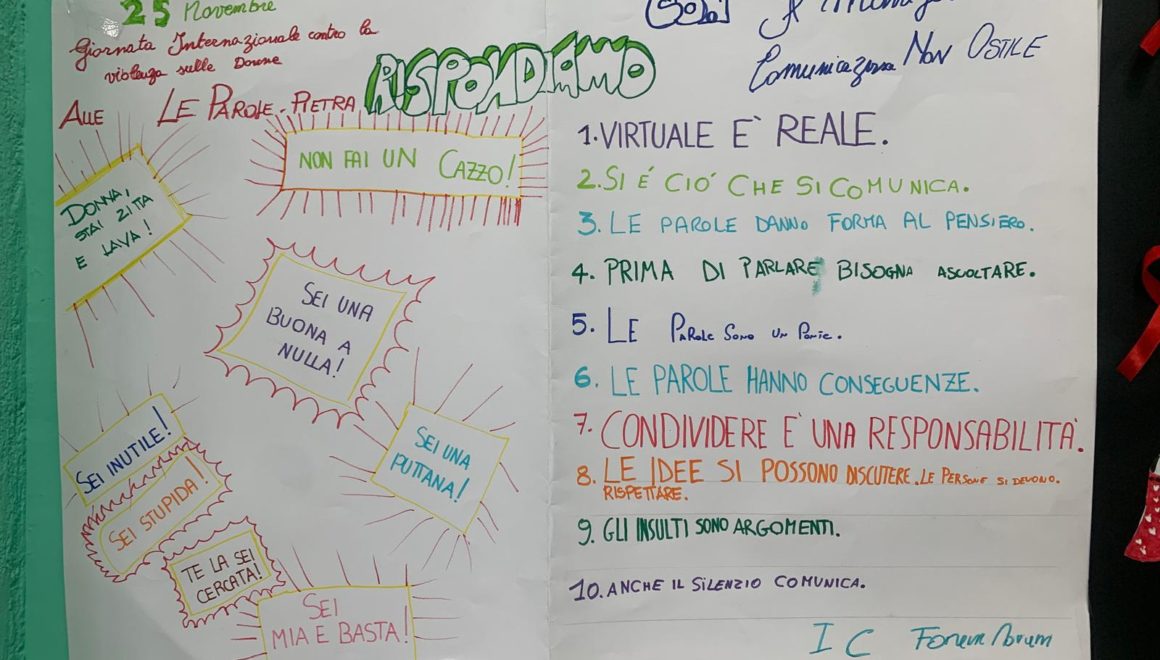 25 Novembre
Giornata Internazionale contro la
violenza sulle Donne
ALLE LE PAROLE-PIETRA RISPONDIAMO
DONNA,
STAI ZITTA
E LAVA!
NON FAI UN CAZZO!
SEI UNA
BUONA A
NULLA!
SEI INUTILE!
SEI STUPIDA!
SEI UNA
PUTTANA!
TE LA SEI
CERCATA!
SEI
MIA E BASTA!
Comunicazione NON OSTILE
1. VIRTUALE E' REALE.
2. SI É CIÓ CHE SI COMUNICA.
3. LE PAROLE DANNO FORMA AL PENSIERO.
4. PRIMA DI PARLARE BISOGNA ASCOLTARE.
5. LE PAROLE SONO UN PONTE.
6. LE PAROLE HANNO CONSEGUENZE.
7. CONDIVIDERE E' UNA RESPONSABILITA'.
8. LE IDEE SI POSSONO DISCUTERE. LE PERSONE SI DEVONO.
RISPETTARE.
9. GLI INSULTI SONO ARGOMENTI.
10. ANCHE IL SILENZIO COMUNICA.
I C